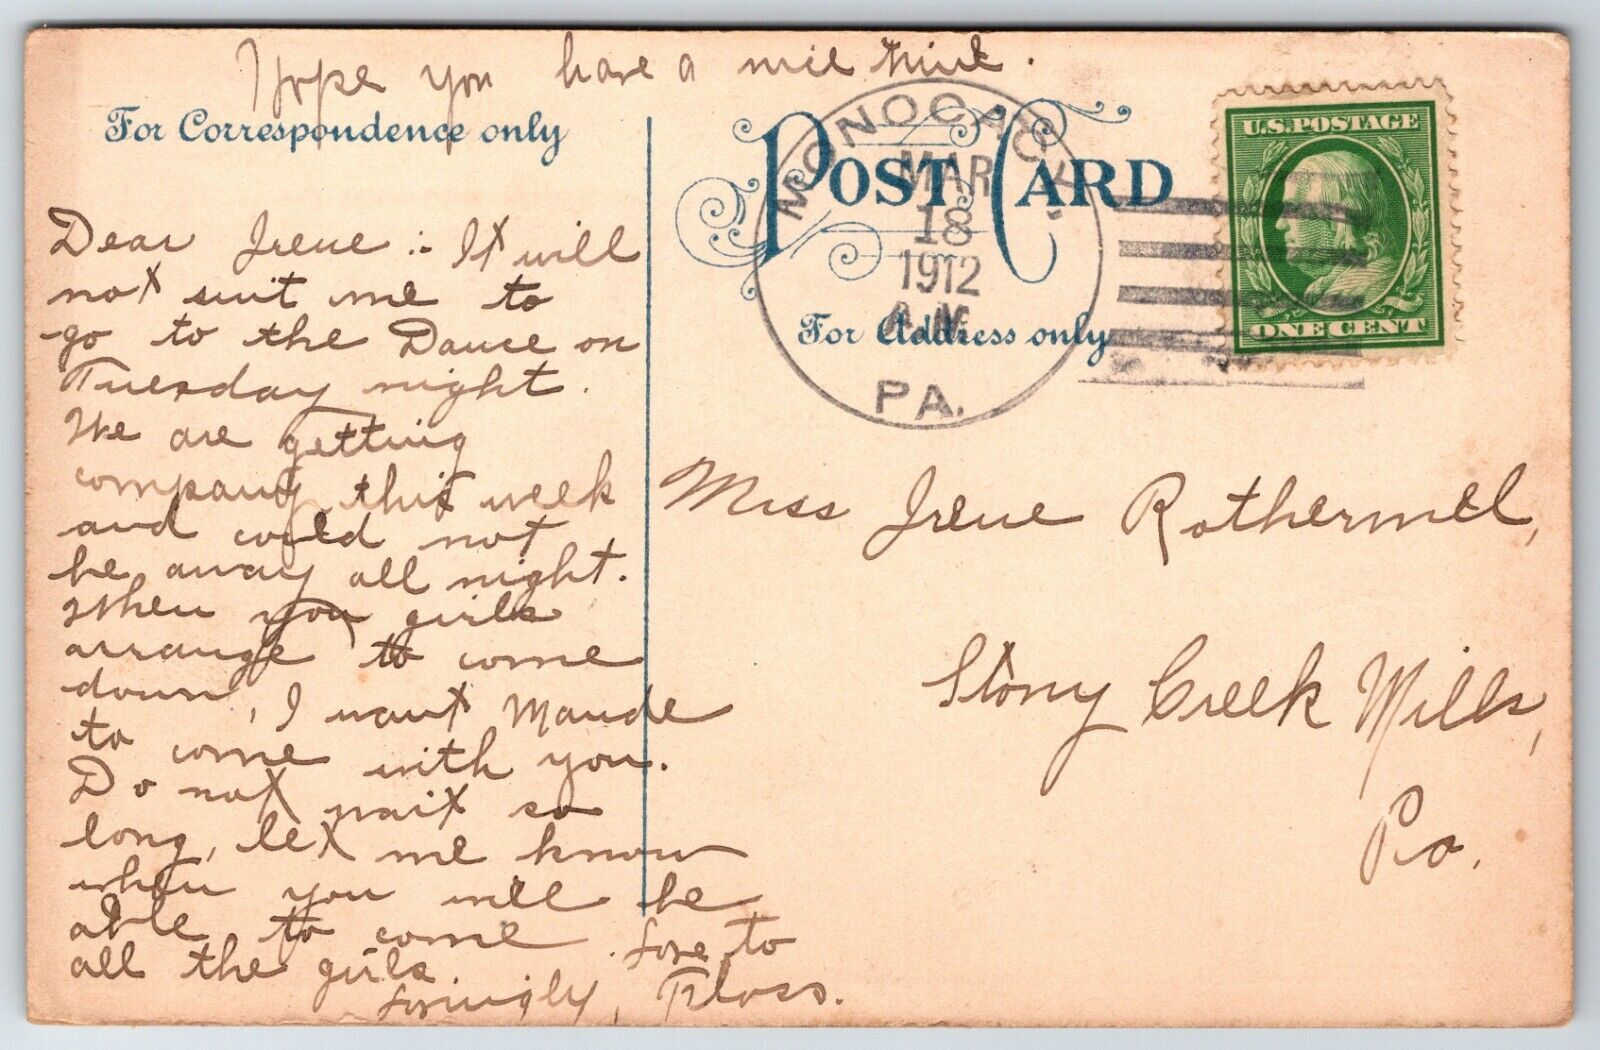 Hope you have a nice time.
For Correspondence only
POST CARD
For Address only
MONOCACY.
MAR
18
1912
A.M.
PA.
U.S. POSTAGE
ONE CENT
Dear Irene :- It will
not suit me to
go to the Dance on
Tuesday night.
We are getting
company this week
and could not
be away all night.
When you girls
arrange to come
down, I want Maude
to come with you.
Do not wait so
long, let me know
when you will be
able to come. Love to
all the girls.
Lovingly, Floss.
Miss Irene Rothermel,
Stony Creek Mills,
Pa.